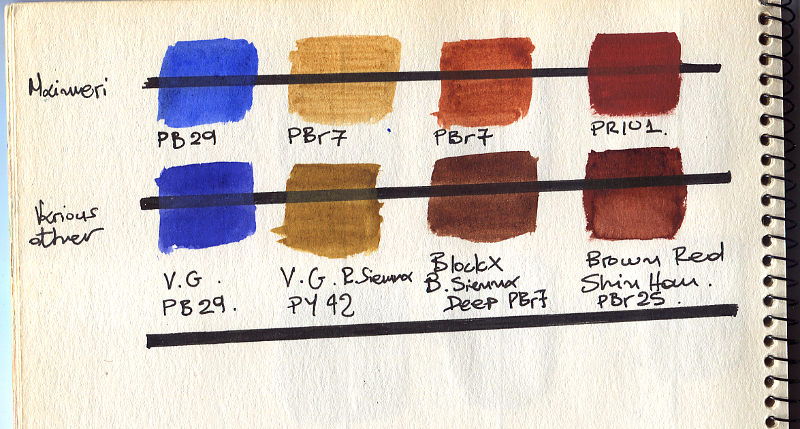 Maimeri
PB29
PBr7
PBr7
PR101.
Various
other
V.G.
PB29.
V.G. R.Sienna
PY42
BlockX
B.Sienna
Deep PBr7
Brown Red
Shin Han.
PBr25.